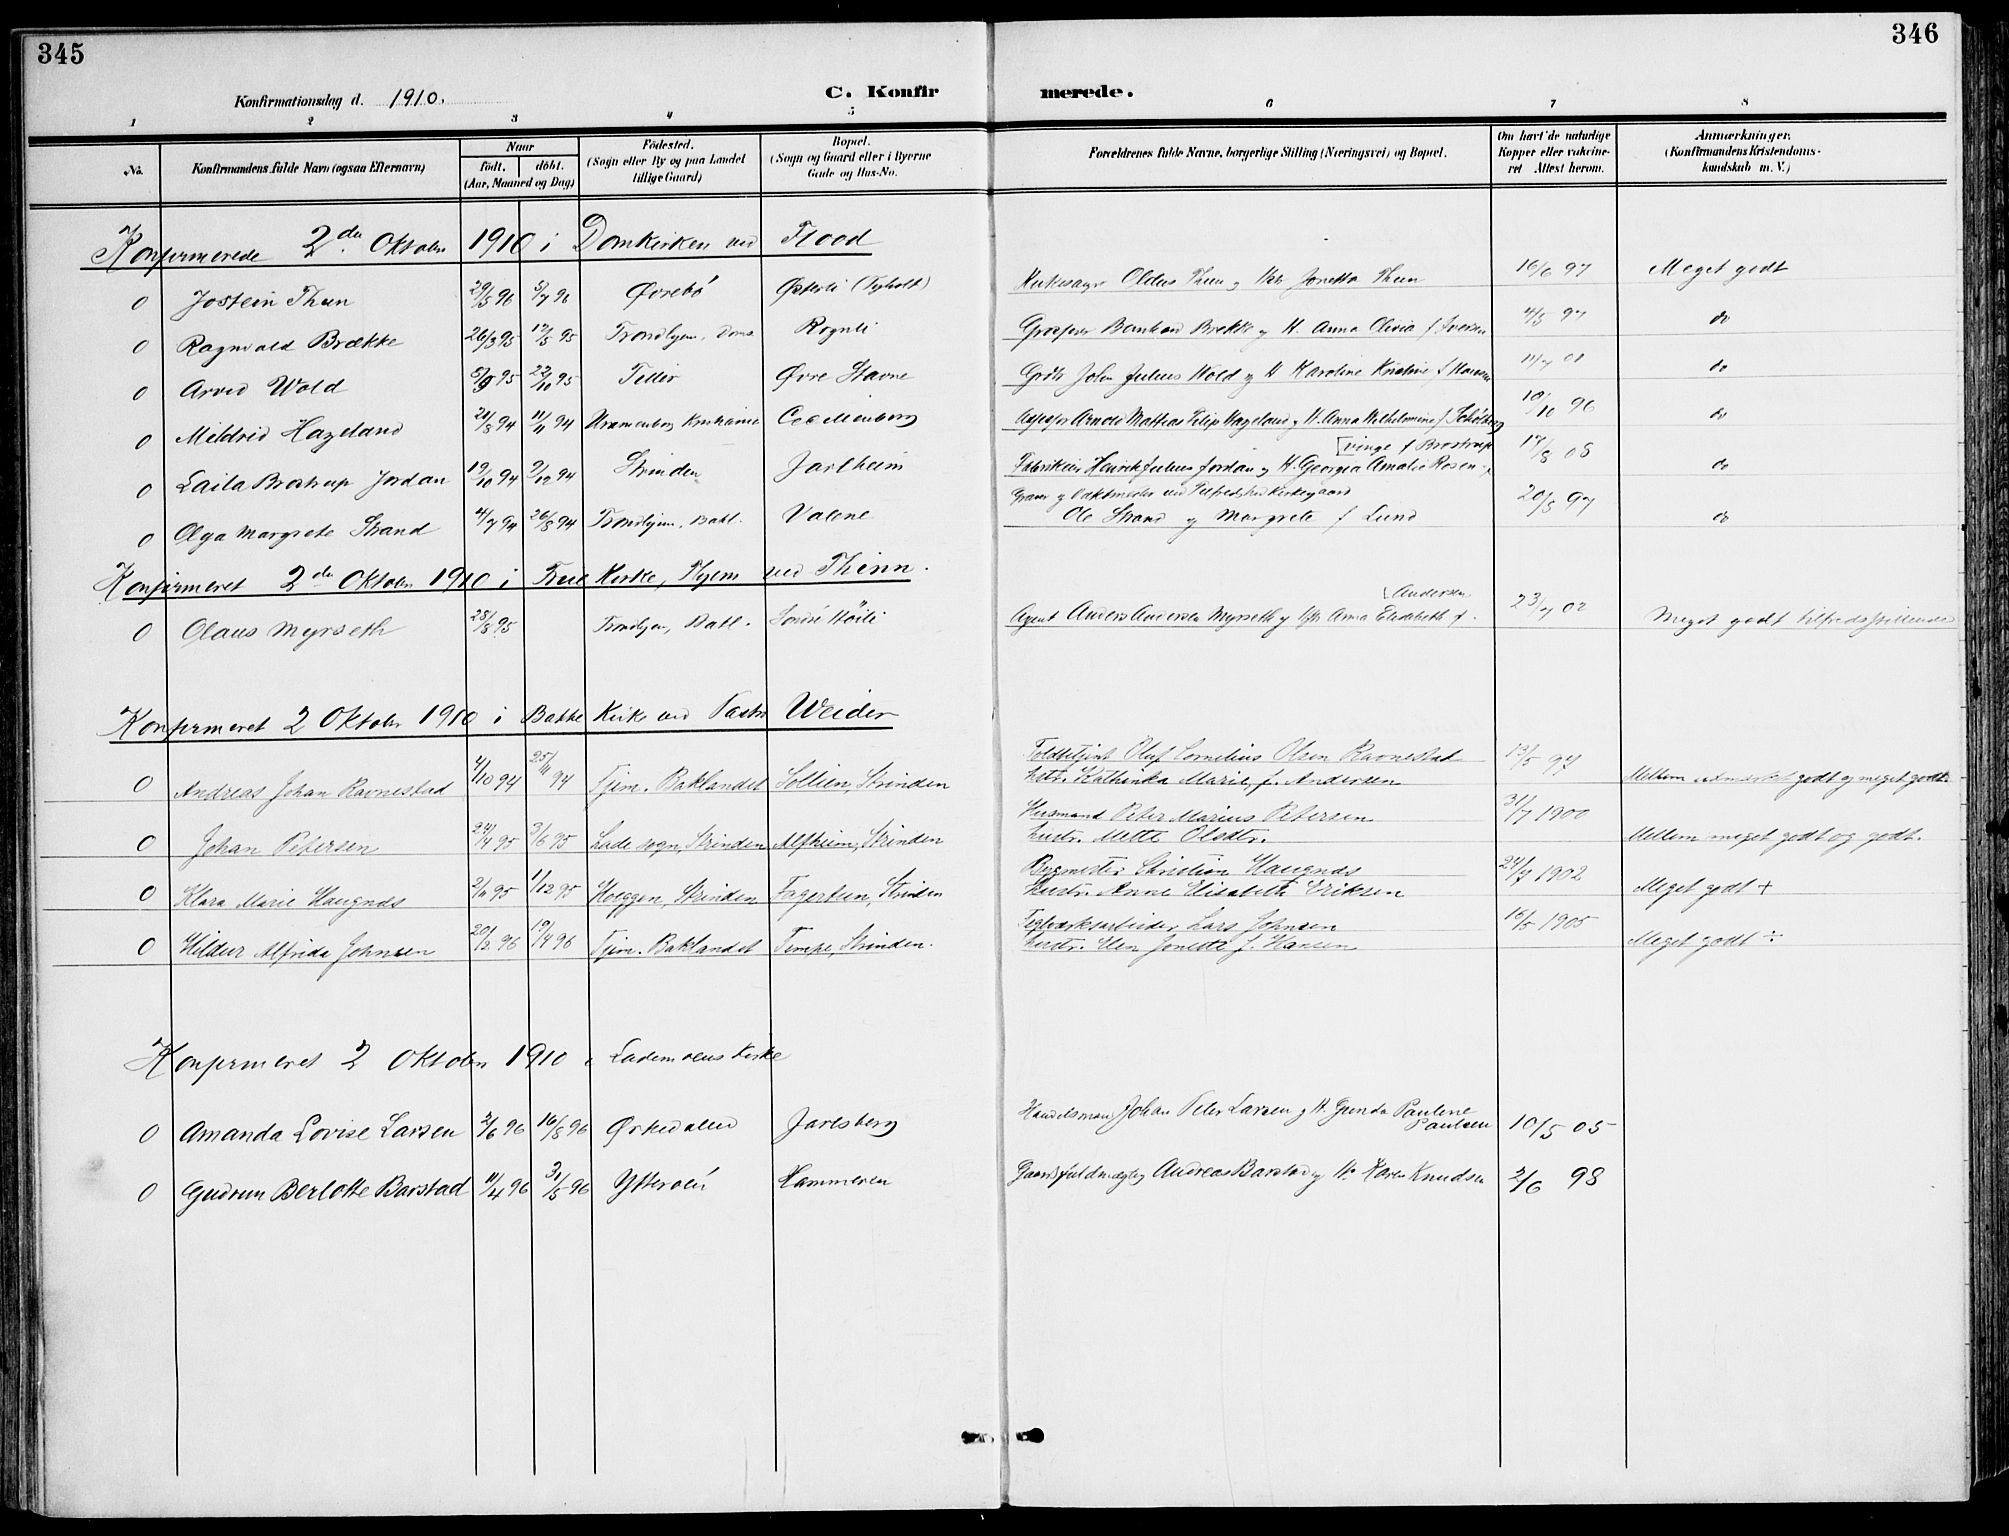 345
346
Konfirmationsdag d. 1910.
C. Konfirmerede.
1 2 3 4 5 6 7 8
No.
Konfirmandens fulde Navn (ogsaa Efternavn)
Naar
født. døbt.
(Aar, Maaned og Dag)
Fødested.
(Sogn eller By og paa Landet
tillige Gaard)
Bopæl.
(Sogn og Gaard eller i Byerne
Gade og Hus-No.
Forældrenes fulde Navne, borgerlige Stilling (Næringsvei) og Bopæl.
Om havt de naturlige
Kopper eller vakcine-
ret Attest herom.
Anmærkninger.
(Konfirmandens Kristendoms-
kundskab m. V.)
Konfirmerede 2den Oktober 1910 i Domkirken ved Flood
0 Jostein Thun 29/5 96 5/7 96 Øvrebö Østerli (Tyholt) Oldus Thun og Jonetta Thun 16/6 97 Meget godt
0 Ragnvald Brække 26/3 95 12/5 95 Trondhjem, Dom Rognli Brække og H. Anna Olivia f Iversen 4/5 97 do
0 Arvid Wold 5/9 95 22/10 95 Tiller Øvre Stavne John Julius Wold og H Karoline Kristine f 11/7 01 do
0 Mildrid Hageland 21/8 94 11/11 94 Uranienborg Kristiania Cecilienborg Arnold Mathias Filip Hageland og H. Anna Wilhelmine f 10/10 96 do
[vinge f Brostrup
0 Laila Brostrup Jordan 19/10 94 9/12 94 Strinden Jarlheim Fabrikeier Henrik Julius Jordan og H. Georgea Amalie Rosen- 17/8 05 do
Graver og Vaktmester ved Tilfredshed Kirkegaard
0 Olga Margrete Strand 4/7 94 26/8 94 Trondhjem, Bakl. Valene Ole Strand og Margrete f Lund 20/5 97 do
Konfirmeret 2den Oktober 1910 i Frue Kirke, Thjem ved Thinn.
[Andersen
0 Olaus Myrseth 28/8 95 Trondhjem, Bakl. Söndre Höili Agent Anders Andersen Myrseth og Anna Elisabeth f. 23/7 02 Meget godt tilfredsstillende
Konfirmeret 2 Oktober 1910 i Bakke Kirke ved Pastor Weider
0 Andreas Johan Ravnestad 4/10 94 25/11 94 Tjem. Baklandet Sollien, Strinden Toldbetjent Oluf Cornelius Olsen Ravnestad 13/5 97
hstr. Kathinka Marie, f. Andersen Mellem godt og meget godt.
0 Johan Petersen 24/4 95 3/6 95 Lade sogn, Strinden Alfheim, Strinden Husmand Peter Marius Petersen 31/7 1900
hustr. Mette Olsdtr. Mellem meget godt og godt.
0 Klara Marie Haugnæs 2/11 95 1/12 95 Hoeggen, Strinden Fagerheim, Strinden Christian Haugnæs 24/7 1902
hustr. Anne Elisabeth Eriksen Meget godt +
0 Hildur Alfrida Johnsen 20/2 96 19/4 96 Tjem. Baklandet Tempe, Strinden. Teglværksarbeider Lars Johnsen 16/5 1905
hustr. Elen Jonette f. Hansen Meget godt ÷
Konfirmeret 2 Oktober 1910 i Lademoens Kirke
0 Amanda Lovise Larsen 2/6 96 16/8 96 Ørkedalen Jarlsberg Handelsmann Johan Peter Larsen og H. Gunda Pauline
Paulsen 10/5 05
0 Gudrun Berlotte Barstad 11/4 96 31/5 96 Ytterøen Hammeren Gaardsfuldmægtig Andreas Barstad og H. Karen Knudsen 2/6 98